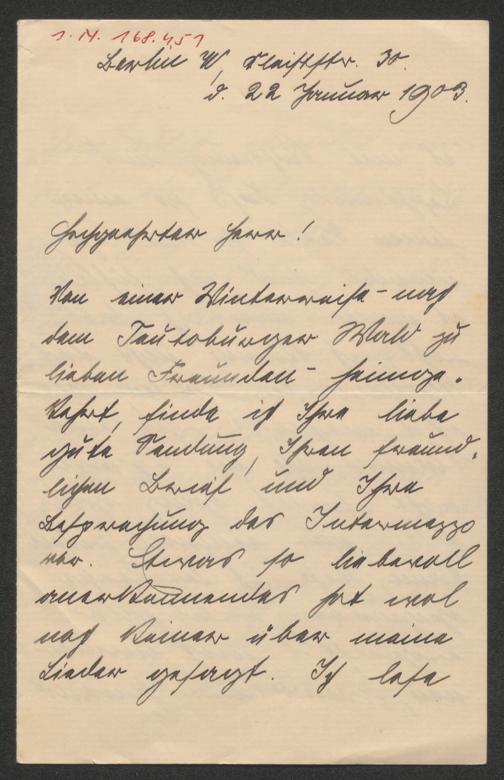 I. N. 168.451
Berlin W, Kleiststr. 30.
d. 22 Januar 1903.
Hochgeehrter Herr!
Von einer Winterreise - nach
dem Teutoburger Wald zu
lieben Freunden - heimge-
kehrt, finde ich Ihre liebe
gute Sendung, Ihren freund-
lichen Brief und Ihre
Besprechung des Intermezzo
vor. Etwas so liebevoll
anerkennendes hat wol
noch keiner über meine
Lieder gesagt. Ich lese